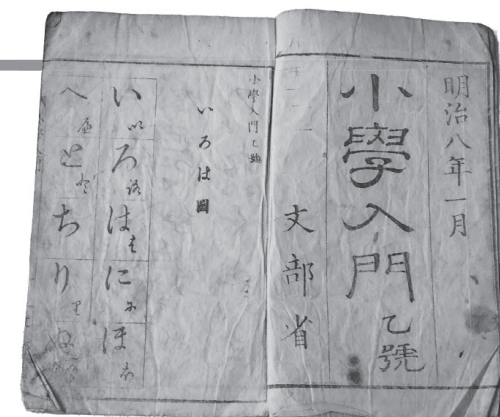 明治八年一月
小學入門
乙號
文部省
小學入門乙號
いろは圖
い ろ は に ほ
へ と ち り ぬ